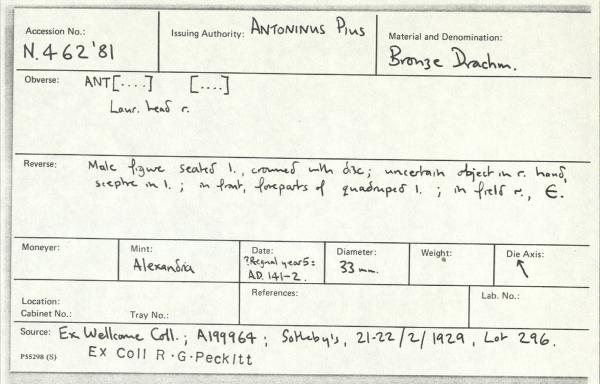 Accession No.:
N.462'81
Issuing Authority: ANTONINUS PIUS
Material and Denomination:
Bronze Drachm.
Obverse: ANT[....] [....]
Laur. head r.
Reverse: Male figure seated l., crowned with disc; uncertain object in r. hand,
sceptre in l. ; in front, foreparts of quadruped l. ; in field r., Є.
Moneyer:
Mint:
Alexandria
Date:
?Regnal year 5:
A.D. 141-2.
Diameter:
33 mm.
Weight:
Die Axis:
↖
Location:
Cabinet No.: Tray No.:
References:
Lab. No.:
Source: Ex Wellcome Coll.; A199964; Sotheby's, 21-22/2/1929, Lot 296.
P55298 (S) Ex Coll R.G.Peckitt